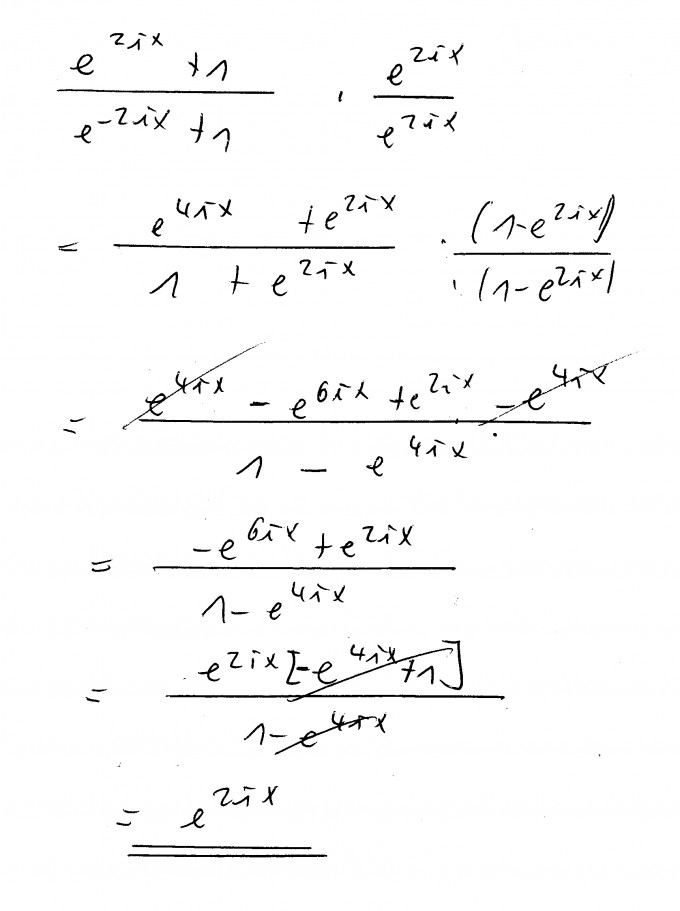 \frac{e^{2ix} + 1}{e^{-2ix} + 1} \cdot \frac{e^{2ix}}{e^{2ix}}
= \frac{e^{4ix} + e^{2ix}}{1 + e^{2ix}} \cdot \frac{(1 - e^{2ix})}{(1 - e^{2ix})}
= \frac{e^{4ix} - e^{6ix} + e^{2ix} - e^{4ix}}{1 - e^{4ix}}
= \frac{-e^{6ix} + e^{2ix}}{1 - e^{4ix}}
= \frac{e^{2ix} [-e^{4ix} + 1]}{1 - e^{4ix}}
= e^{2ix}